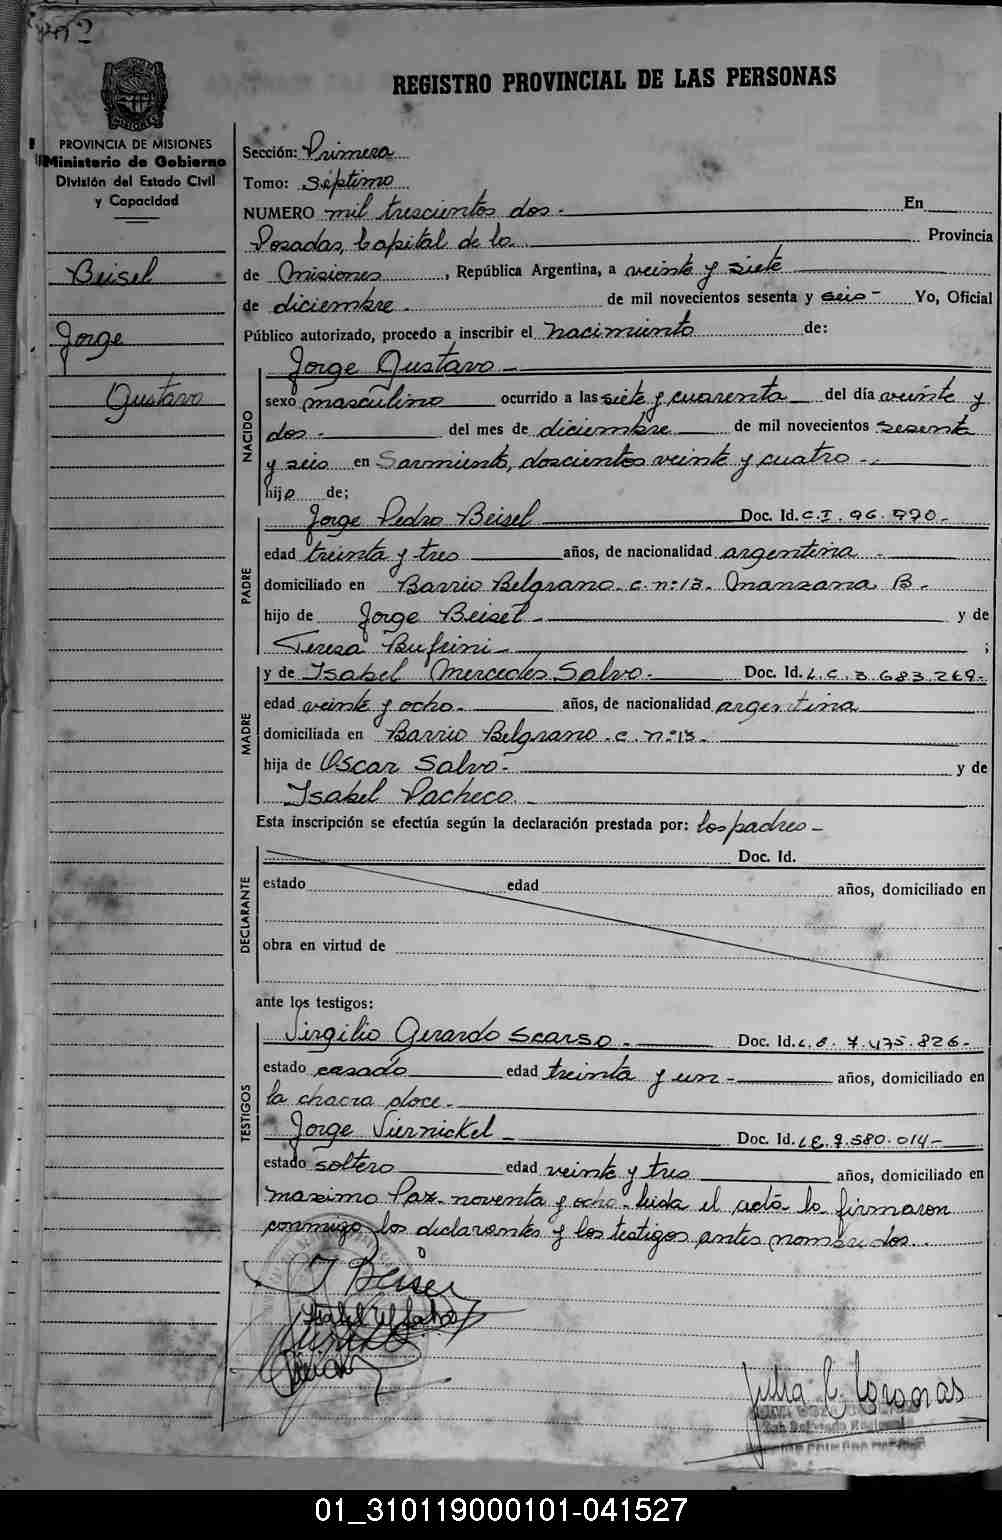 REGISTRO PROVINCIAL DE LAS PERSONAS
PROVINCIA DE MISIONES
Ministerio de Gobierno
División del Estado Civil
y Capacidad
Beisel
Jorge
Gustavo
Sección: Primera
Tomo: Séptimo
NUMERO mil trescientos dos.- En
Posadas, Capital de la Provincia
de Misiones, República Argentina, a veinte y siete
de diciembre. de mil novecientos sesenta y seis- Yo, Oficial
Público autorizado, procedo a inscribir el nacimiento de:
NACIDO
Jorge Gustavo.-
sexo masculino ocurrido a las siete y cuarenta del día veinte y
dos.- del mes de diciembre de mil novecientos sesenta
y seis en Sarmiento, doscientos veinte y cuatro.-
hijo de;
PADRE
Jorge Pedro Beisel Doc. Id. C.I. 96.990.-
edad treinta y tres años, de nacionalidad argentina.-
domiciliado en Barrio Belgrano.c.nº13. Manzana B.-
hijo de Jorge Beisel.- y de
Teresa Bufeini.- ;
MADRE
y de Isabel Mercedes Salvo.- Doc. Id. L.C. 3.683.269.-
edad veinte y ocho.- años, de nacionalidad argentina
domiciliada en Barrio Belgrano.c.nº13.-
hija de Oscar Salvo.- y de
Isabel Pacheco.-
Esta inscripción se efectúa según la declaración prestada por: los padres-
DECLARANTE
Doc. Id.
estado edad años, domiciliado en
obra en virtud de
ante los testigos:
TESTIGOS
Virgilio Gerardo Scarso.- Doc. Id. L.E. 7.475.826.-
estado casado edad treinta y un.- años, domiciliado en
la chacra doce.-
Jorge Siernickel.- Doc. Id. LE. 7.580.014-
estado soltero edad veinte y tres años, domiciliado en
maximo Paz noventa y ocho. leida el acta la firmaron
conmigo los declarantes y los testigos antes nombrados.
J Beisel
01_310119000101-041527